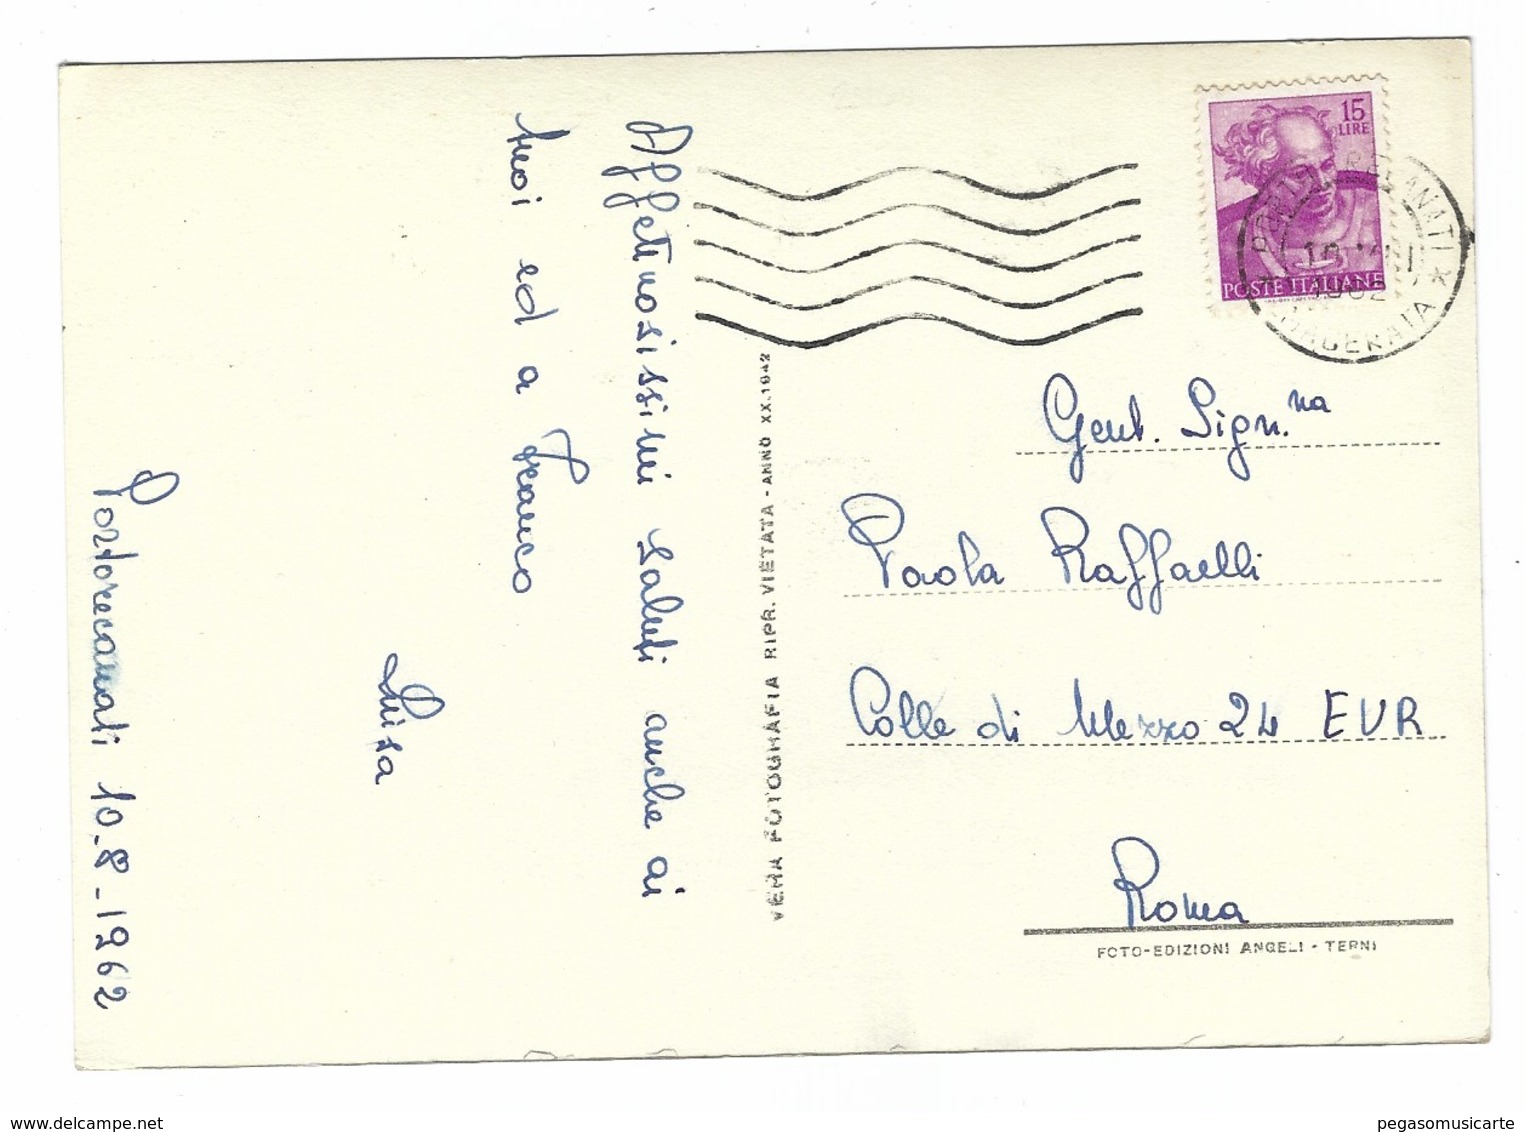 Affettuosissimi saluti anche ai
tuoi ed a Franco
Luisa
Portorecanati 10-8-1962
VERA FOTOGRAFIA RIPR. VIETATA - ANNO XX.1942
15
LIRE
POSTE ITALIANE
PORTO RECANATI
1962
MACERATA
Gent. Sign.na
Paola Raffaelli
Colle di Mezzo 24 EUR
Roma
FOTO-EDIZIONI ANGELI - TERNI
www.delcampe.net
pegasomusicarte